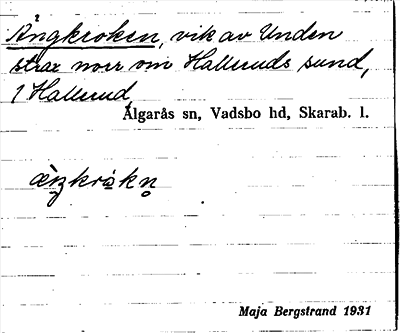 Ångkroken, vik av Unden
strax norr om Halleruds sund,
1 Hallerud,
Älgarås sn, Vadsbo hd, Skarab. l.
Maja Bergstrand 1931